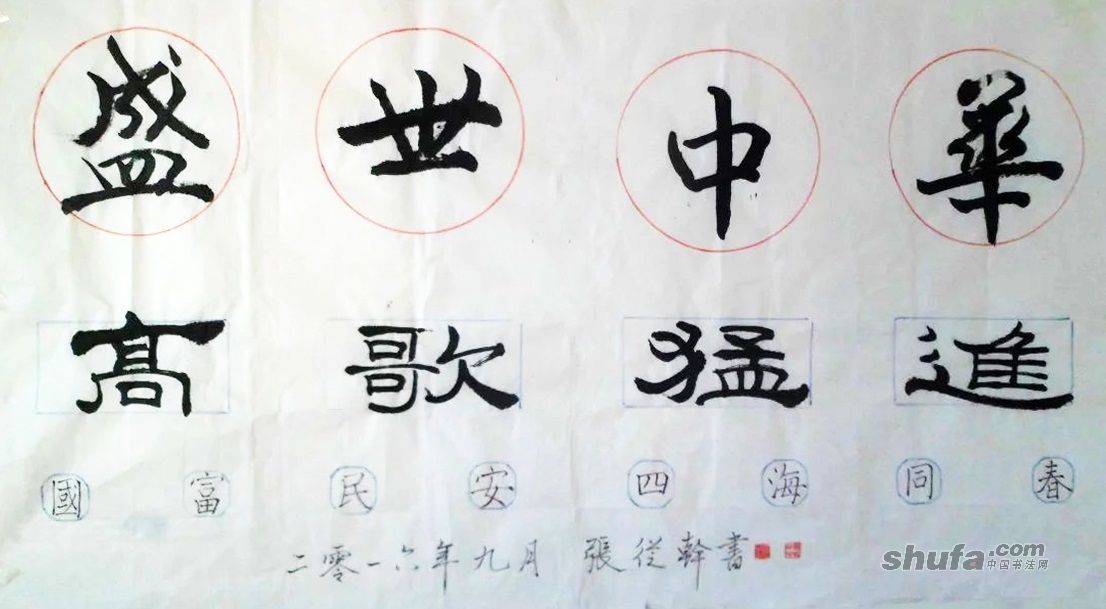 盛世中華
高歌猛進
國富民安四海同春
二零一六年九月 張從幹書
shufa.com
中国书法网